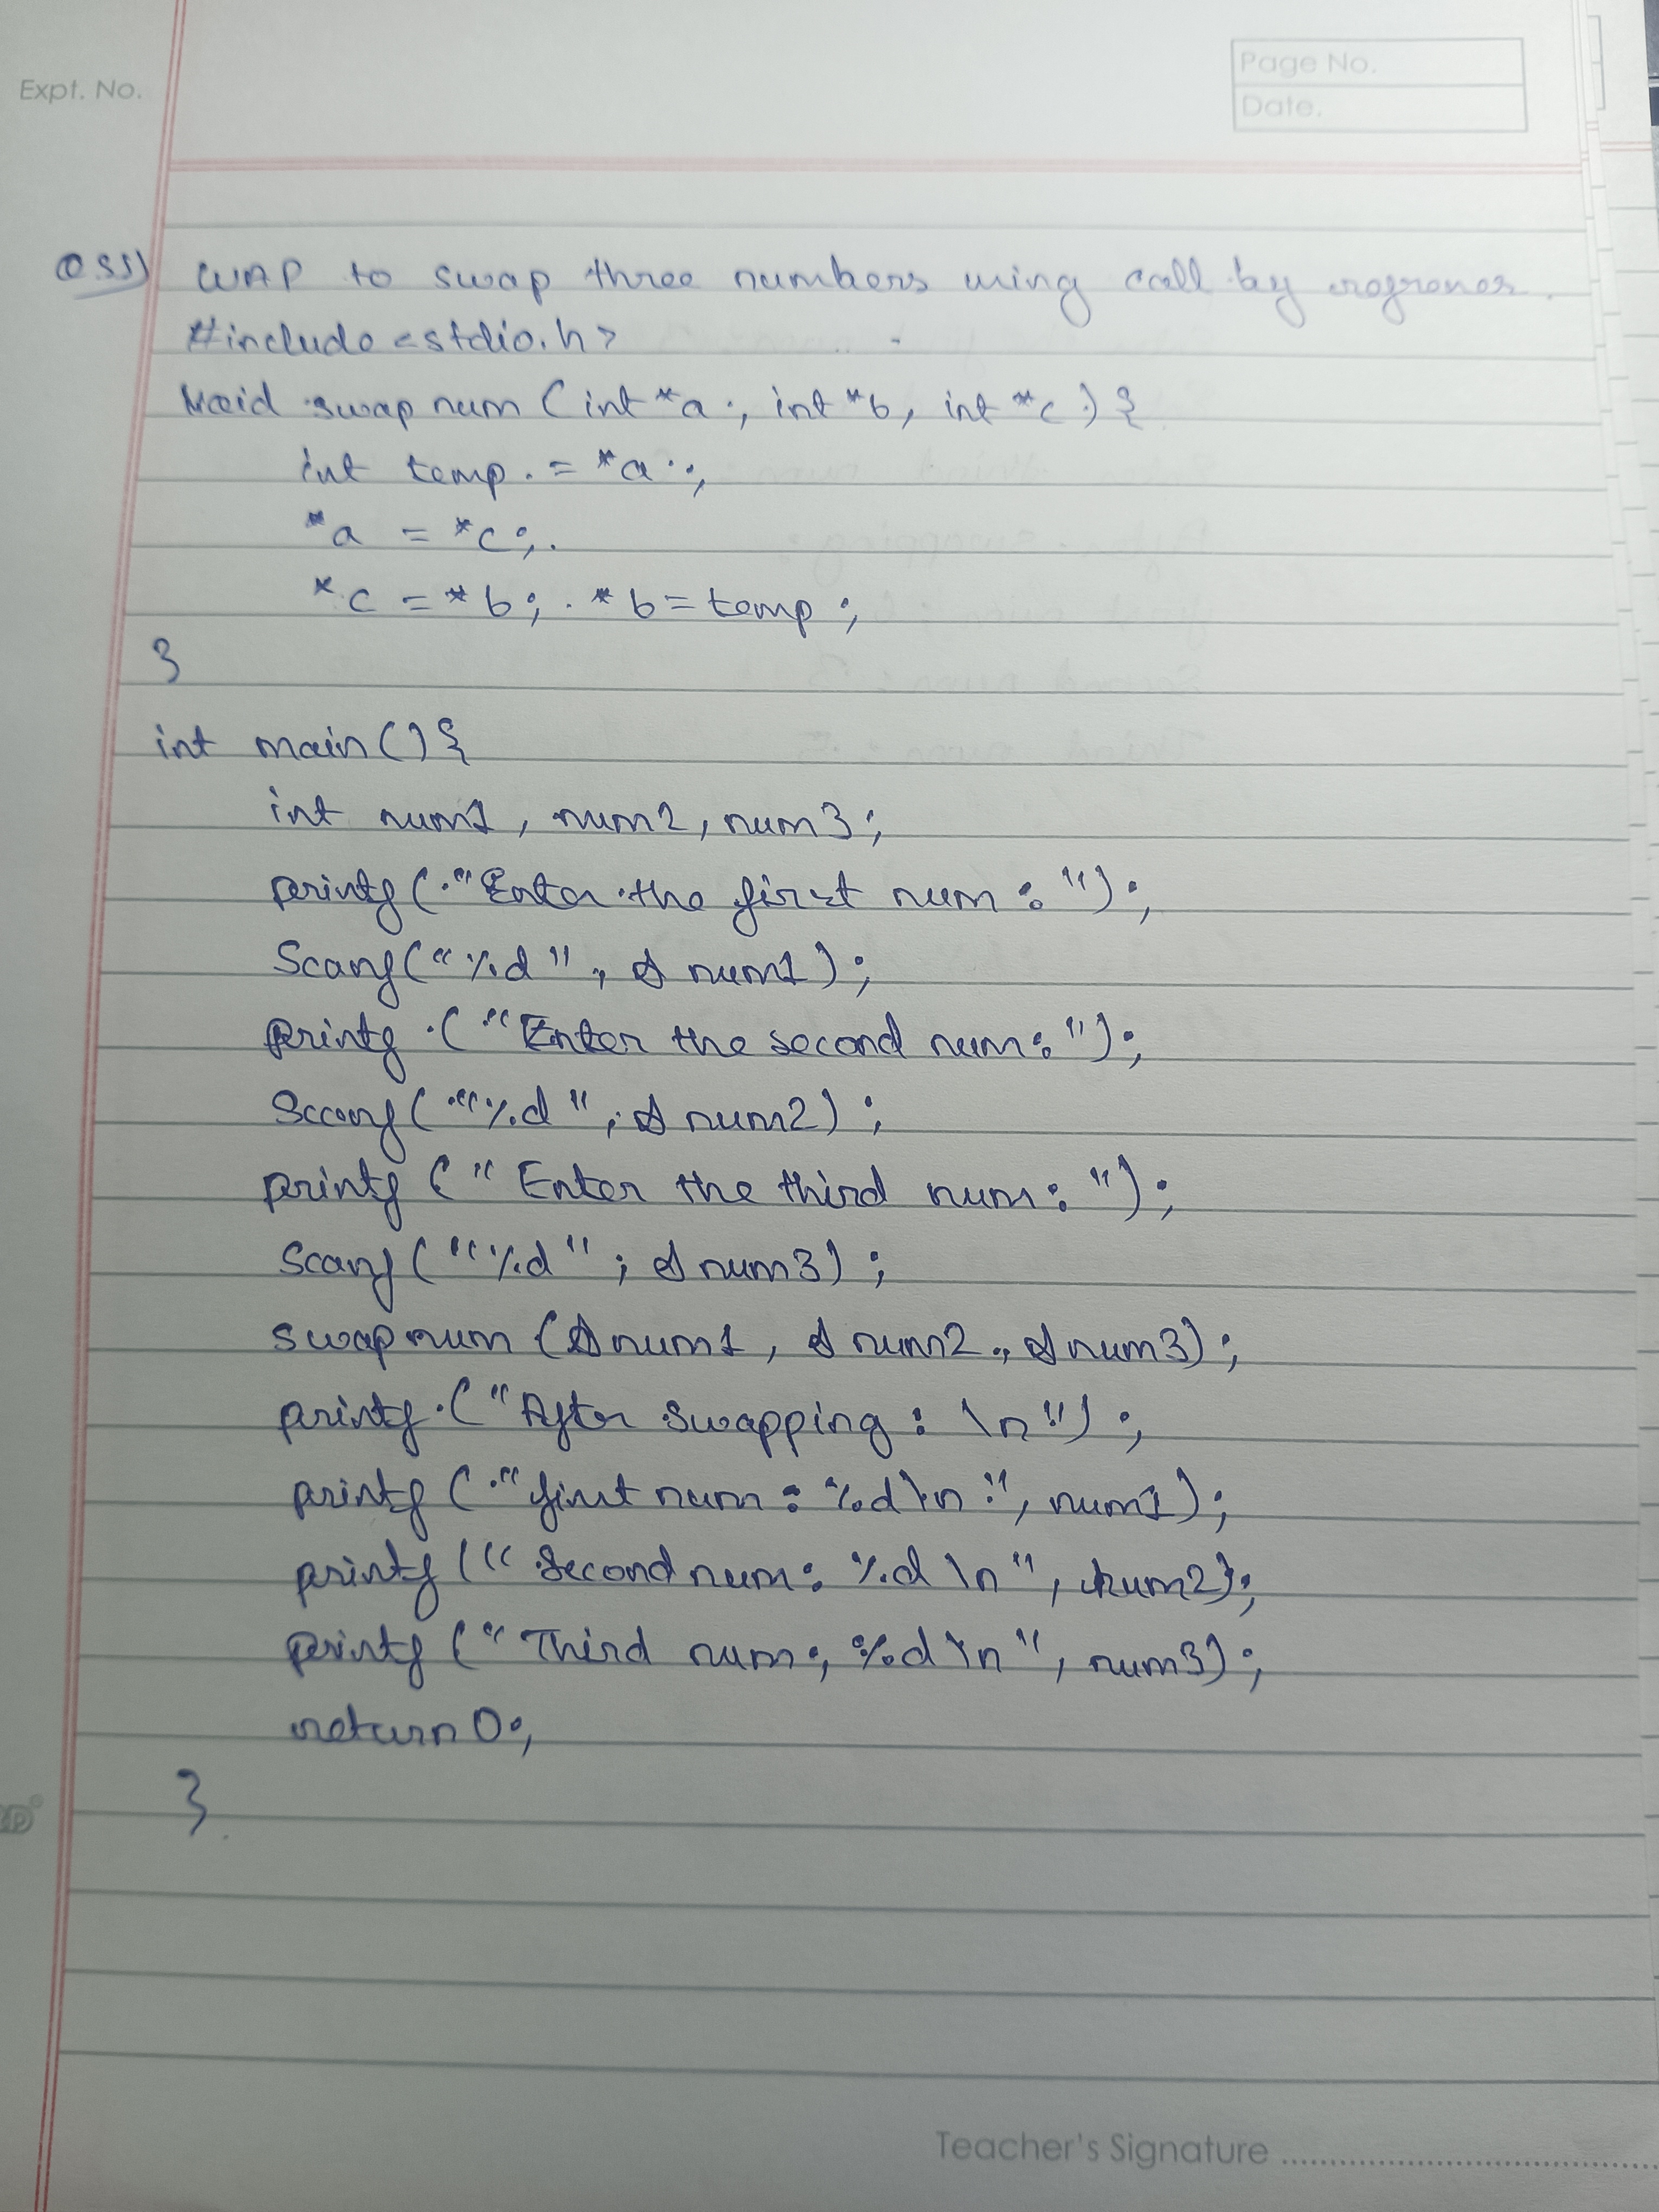 Expt. No.
Page No.
Date.
Q55) WAP to swap three numbers using call by
#include <stdio.h>
Void swap num (int *a, int *b, int *c) {
int temp = *a;
*a = *c;
*c = *b; *b = temp;
}
int main() {
int num1, num2, num3;
printf("Enter the first num : ");
Scanf("%d", & num1);
printf ("Enter the second num: ");
Scanf("%d", & num2);
printf (" Enter the third num: ");
Scanf("%d"; & num3);
swap num (&num1, & num2, & num3);
printf ("After swapping : \n");
printf ("first num : %d\n", num1);
printf (" Second num: %d \n", num2);
printf (" Third num; %d\n", num3);
return 0;
}
Teacher's Signature